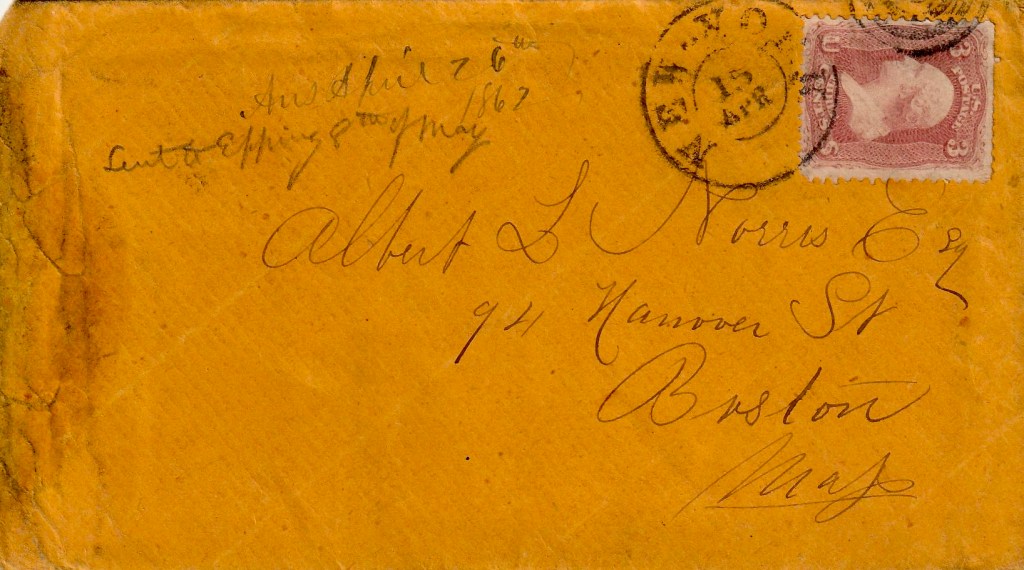 Ans April 26th
1863
Sent to Epping 8th of May
NEW YORK
15
APR
U S
3 3
Albert L Norris Esq
94 Hanover St
Boston
Mass